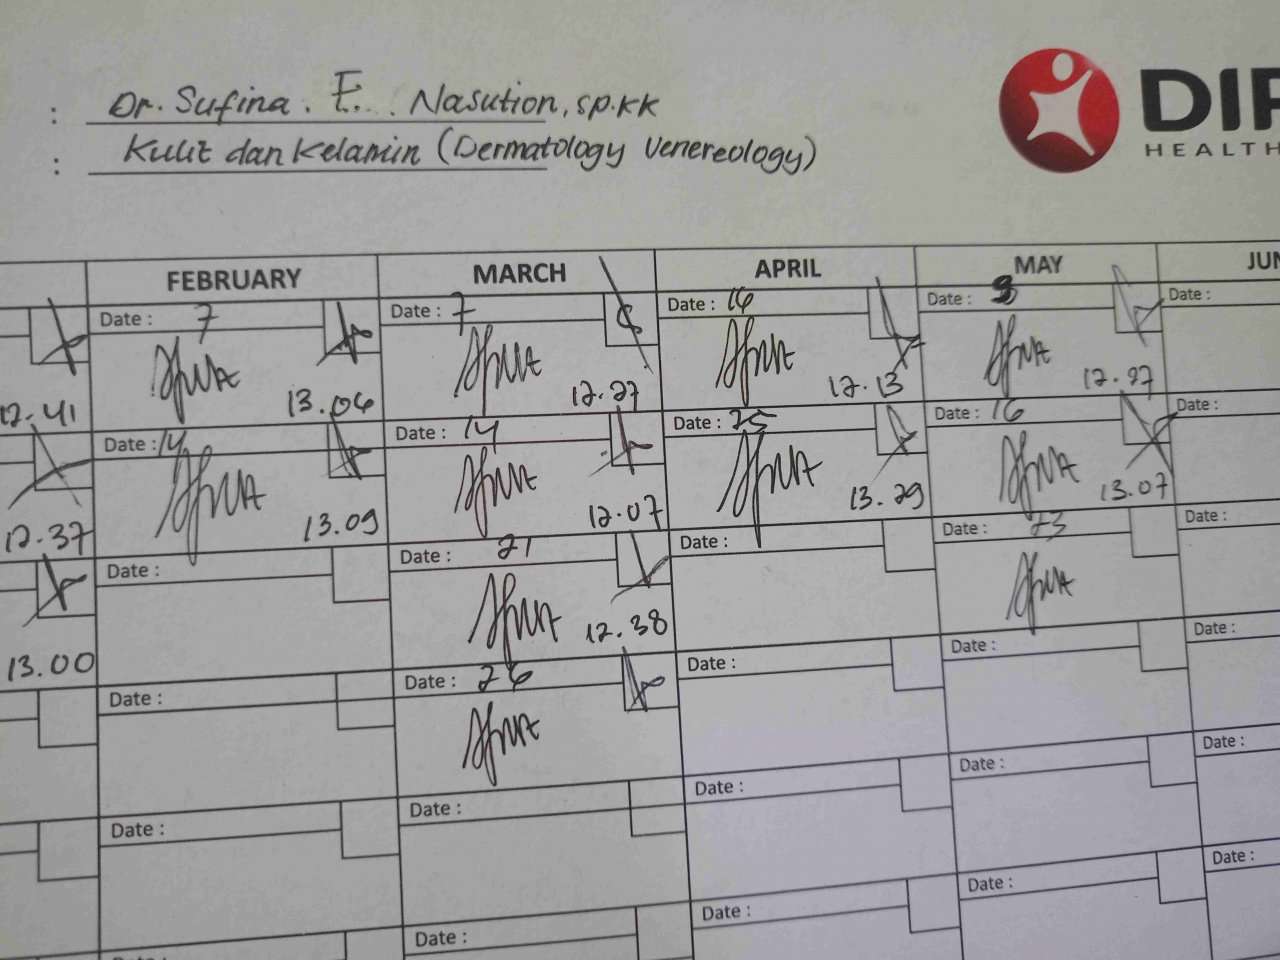 : Dr. Sufina. E. Nasution, sp.kk
: Kulit dan Kelamin (Dermatology Venereology)
DIP
HEALTH
FEBRUARY MARCH APRIL MAY JUN
Date : 7 Date : 7 Date : 16 Date : Date :
12.41 13.06 12.27 12.13 12.27
Date : 14 Date : 14 Date : 25 Date : 16 Date :
12.37 13.09 12.07 13.29 13.07
Date : Date : 21 Date : Date : 23 Date :
13.00 12.38
Date : Date : 26 Date : Date : Date :
Date : Date : Date : Date : Date :
Date : Date : Date : Date :